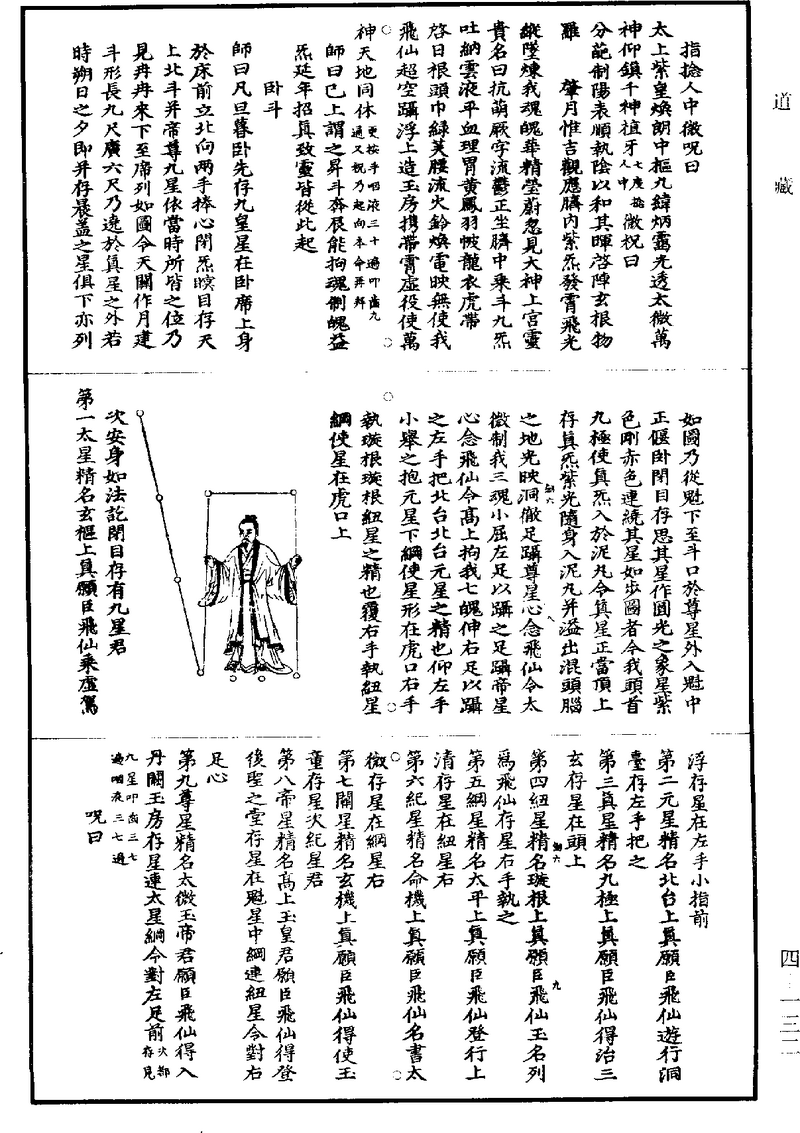 道藏
四—一三二
指捻人中微呪曰
太上紫皇煥朗中樞九緯炳靄光透太微萬
神仰鎮千神植牙七度捻人中微祝曰
分葩制陽表順執陰以和其暉啓陣玄根物
離肇月惟吉觀應臍內紫炁發霄飛光
縱墜煉我魂魄華精瑩蔚忽見大神上宮靈
貴名曰抗萌厥字流鬱正坐臍中乘斗九炁
吐納雲液平血理胃黃鳳羽帔龍衣虎帶
啓日根頭巾綠芙腰流火鈴煥電映無使我
飛仙超空躡浮上造玉房携帶霄虛役使萬
神天地同休更按手咽液三十遍叩齒九通又祝乃起向本命再拜
師曰已上謂之昇斗奔辰能拘魂制魄益
炁延年招真致靈皆從此起
臥斗
師曰凡旦暮臥先存九皇星在臥席上身
於床前立北向兩手捧心閉炁瞑目存天
上北斗并帝尊九星依當時所皆之位乃
見冉冉來下至席列如圖令天關作月建
斗形長九尺廣六尺乃遶於真星之外若
時朔日之夕即并存晨蓋之星俱下亦列
如圖乃從魁下至斗口於尊星外入魁中
正偃臥閉目存思其星作圓光之象星紫
色剛赤色連繞其星如步圖者令我頭首
九極使真炁入於泥丸令真星正當頂上
存真炁紫光隨身入泥丸并溢出混頭腦
之地光映洞徹足躡尊星心念飛仙令太
微制我三魂小屈左足以躡之足躡帝星
心念飛仙令高上拘我七魄伸右足以躡
之左手把北台北台元星之精也仰左手
小舉之抱元星下綱使星形在虎口右手
執璇根璇根紐星之精也覆右手執紐星
綱使星在虎口上
次安身如法訖閉目存有九星君
第一太星精名玄樞上真願臣飛仙乘虛駕
浮存星在左手小指前
第二元星精名北台上真願臣飛仙遊行洞
臺存左手把之
第三真星精名九極上真願臣飛仙得治三
玄存星在頭上
第四紐星精名璇根上真願臣飛仙玉名列
為飛仙存星右手執之
第五綱星精名太平上真願臣飛仙登行上
清存星在紐星右
第六紀星精名命機上真願臣飛仙名書太
微存星在綱星右
第七關星精名玄機上真願臣飛仙得使玉
童存星次紀星君
第八帝星精名高上玉皇君願臣飛仙得登
後聖之堂存星在魁星中綱連紐星令對右
足心
第九尊星精名太微玉帝君願臣飛仙得入
丹闕玉房存星連太星綱令對左足前次都存見
九星叩齒三七遍咽液三七過呪曰